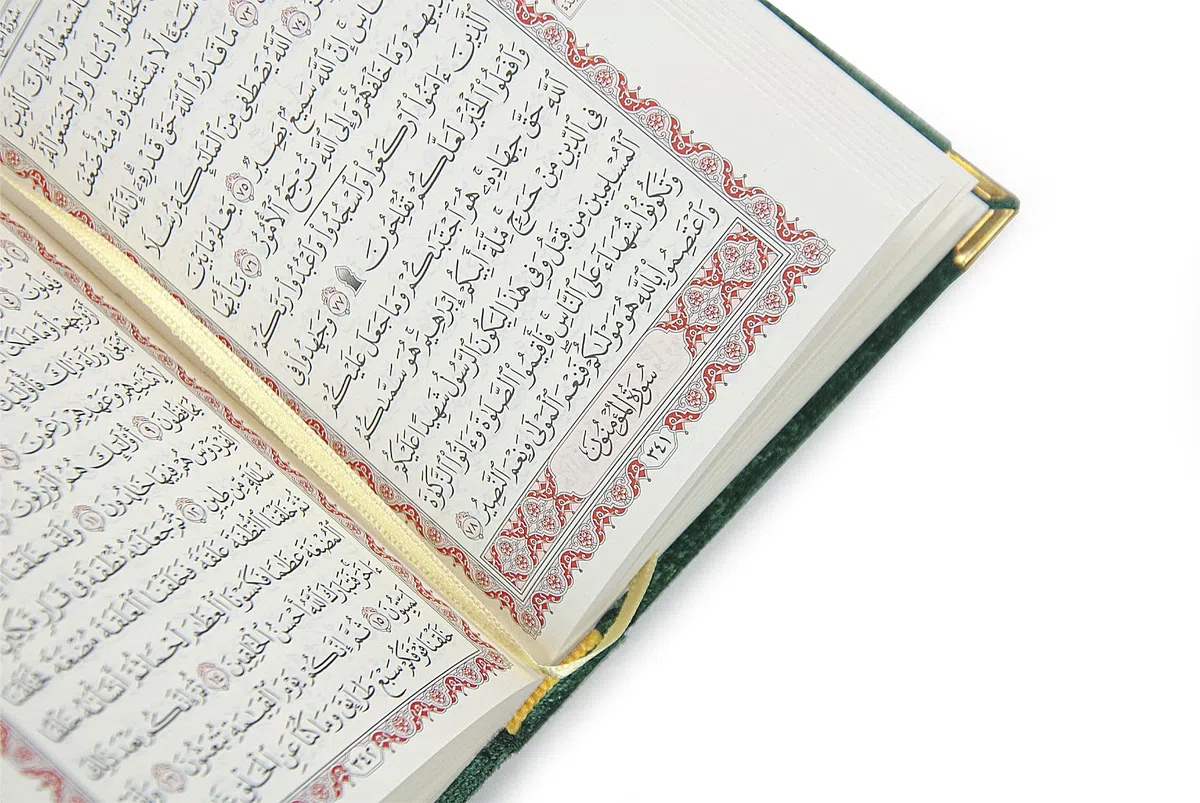 فَٱسْتَمِعُوا۟ لَهُۥٓ إِنَّ ٱلَّذِينَ
يَخْلُقُوا۟ ذُبَابًا وَلَوِ ٱجْتَمَعُوا۟ لَهُۥ
شَيْـًٔا لَّا يَسْتَنقِذُوهُ مِنْهُ ضَعُفَ
٧٣ مَا قَدَرُوا۟ ٱللَّهَ حَقَّ قَدْرِهِۦٓ إِنَّ ٱللَّهَ
٧٤ ٱللَّهُ يَصْطَفِى مِنَ ٱلْمَلَٰٓئِكَةِ رُسُلًا
إِنَّ ٱللَّهَ سَمِيعٌۢ بَصِيرٌ ٧٥ يَعْلَمُ مَا بَيْنَ
وَمَا خَلْفَهُمْ وَإِلَى ٱللَّهِ تُرْجَعُ ٱلْأُمُورُ ٧٦ يَٰٓأَيُّهَا
ٱلَّذِينَ ءَامَنُوا۟ ٱرْكَعُوا۟ وَٱسْجُدُوا۟ وَٱعْبُدُوا۟ رَبَّكُمْ
وَٱفْعَلُوا۟ ٱلْخَيْرَ لَعَلَّكُمْ تُفْلِحُونَ ۩ ٧٧ وَجَٰهِدُوا۟ فِى
ٱللَّهِ حَقَّ جِهَادِهِۦ هُوَ ٱجْتَبَىٰكُمْ وَمَا جَعَلَ عَلَيْكُمْ
فِى ٱلدِّينِ مِنْ حَرَجٍ مِّلَّةَ أَبِيكُمْ إِبْرَٰهِيمَ هُوَ سَمَّىٰكُمُ
ٱلْمُسْلِمِينَ مِن قَبْلُ وَفِى هَٰذَا لِيَكُونَ ٱلرَّسُولُ شَهِيدًا عَلَيْكُمْ
وَتَكُونُوا۟ شُهَدَآءَ عَلَى ٱلنَّاسِ فَأَقِيمُوا۟ ٱلصَّلَوٰةَ وَءَاتُوا۟ ٱلزَّكَوٰةَ
وَٱعْتَصِمُوا۟ بِٱللَّهِ هُوَ مَوْلَىٰكُمْ فَنِعْمَ ٱلْمَوْلَىٰ وَنِعْمَ ٱلنَّصِيرُ ٧٨
سُورَةُ المُؤْمِنُونَ
٣٤١
أَزْوَٰجِهِمْ أَوْ مَا مَلَكَتْ
ٱبْتَغَىٰ وَرَآءَ ذَٰلِكَ فَأُو۟لَٰٓئِكَ
لِأَمَٰنَٰتِهِمْ وَعَهْدِهِمْ رَٰعُونَ ٨
يُحَافِظُونَ ٩ أُو۟لَٰٓئِكَ هُمُ ٱلْوَٰرِثُونَ
ٱلْفِرْدَوْسَ هُمْ فِيهَا خَٰلِدُونَ ١١ وَلَقَدْ خَلَقْنَا
سُلَٰلَةٍ مِّن طِينٍ ١٢ ثُمَّ جَعَلْنَٰهُ نُطْفَةً فِى قَرَارٍ مَّكِينٍ
ثُمَّ خَلَقْنَا ٱلنُّطْفَةَ عَلَقَةً فَخَلَقْنَا ٱلْعَلَقَةَ مُضْغَةً فَخَلَقْنَا
ٱلْمُضْغَةَ عِظَٰمًا فَكَسَوْنَا ٱلْعِظَٰمَ لَحْمًا ثُمَّ أَنشَأْنَٰهُ خَلْقًا
ءَاخَرَ فَتَبَارَكَ ٱللَّهُ أَحْسَنُ ٱلْخَٰلِقِينَ ١٤ ثُمَّ إِنَّكُم بَعْدَ ذَٰلِكَ
لَمَيِّتُونَ ١٥ ثُمَّ إِنَّكُمْ يَوْمَ ٱلْقِيَٰمَةِ تُبْعَثُونَ ١٦ وَلَقَدْ
خَلَقْنَا فَوْقَكُمْ سَبْعَ طَرَآئِقَ وَمَا كُنَّا عَنِ ٱلْخَلْقِ
٣٤٢